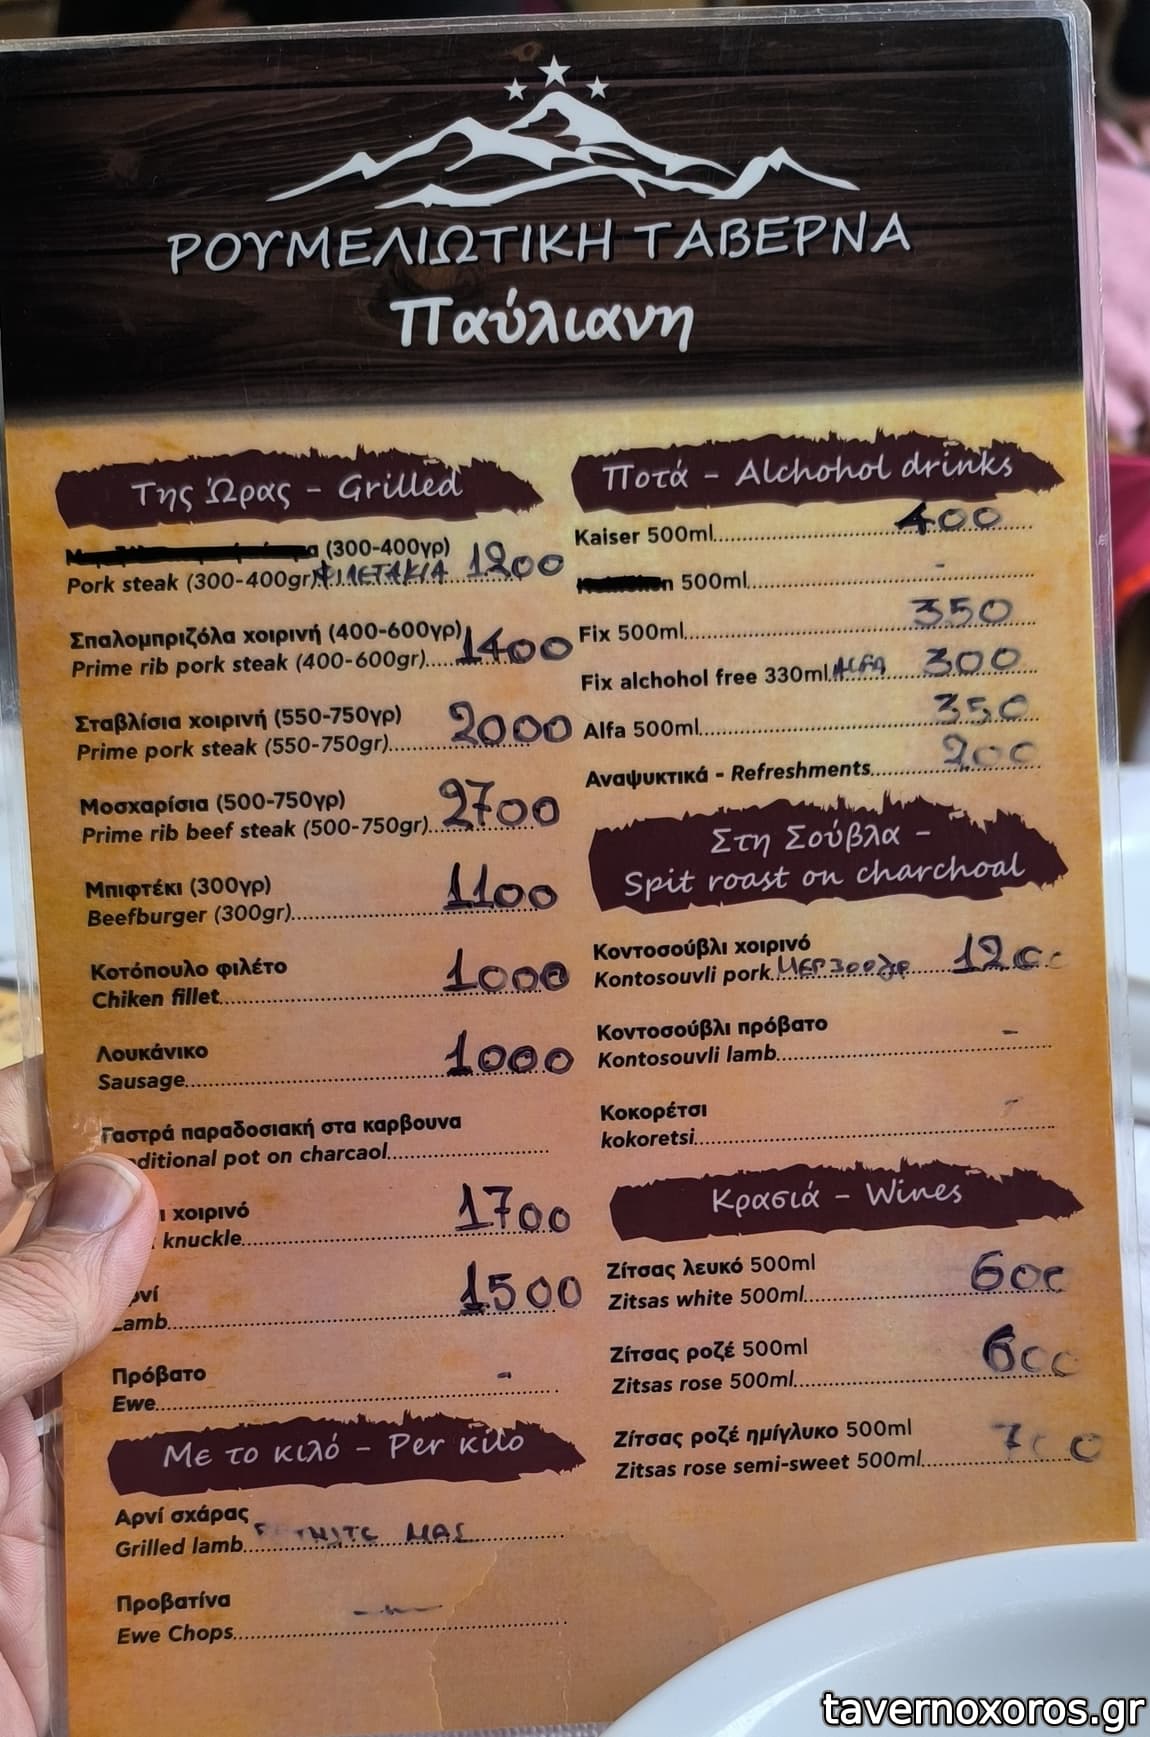 ΡΟΥΜΕΛΙΩΤΙΚΗ ΤΑΒΕΡΝΑ
Παύλιανη
Της Ώρας - Grilled
(300-400γρ)
Pork steak (300-400gr) ΦΙΛΕΤΑΚΙΑ 1200
Σπαλομπριζόλα χοιρινή (400-600γρ)
Prime rib pork steak (400-600gr)..... 1400
Σταβλίσια χοιρινή (550-750γρ)
Prime pork steak (550-750gr)..... 2000
Μοσχαρίσια (500-750γρ)
Prime rib beef steak (500-750gr)..... 2700
Μπιφτέκι (300γρ)
Beefburger (300gr)..... 1100
Κοτόπουλο φιλέτο
Chiken fillet..... 1000
Λουκάνικο
Sausage..... 1000
Γαστρά παραδοσιακή στα καρβουνα
ditional pot on charcaol.....
χοιρινό
knuckle..... 1700
Lamb..... 1500
Πρόβατο
Ewe..... -
Με το κιλό - Per κilo
Αρνί σχάρας
Grilled lamb..... ΜΑΣ
Προβατίνα
Ewe Chops..... -
Ποτά - Alchohol drinks
Kaiser 500ml..... 400
500ml..... -
Fix 500ml..... 350
Fix alchohol free 330ml ALFA 300
Alfa 500ml..... 350
Αναψυκτικά - Refreshments..... 200
Στη Σούβλα -
Spit roast on charchoal
Κοντοσούβλι χοιρινό
Kontosouvli pork..... ΜΕΡ 300γρ 1200
Κοντοσούβλι πρόβατο
Kontosouvli lamb..... -
Κοκορέτσι
kokoretsi..... -
Κρασιά - Wines
Ζίτσας λευκό 500ml
Zitsas white 500ml..... 600
Ζίτσας ροζέ 500ml
Zitsas rose 500ml..... 600
Ζίτσας ροζέ ημίγλυκο 500ml
Zitsas rose semi-sweet 500ml..... 700
tavernoxoros.gr